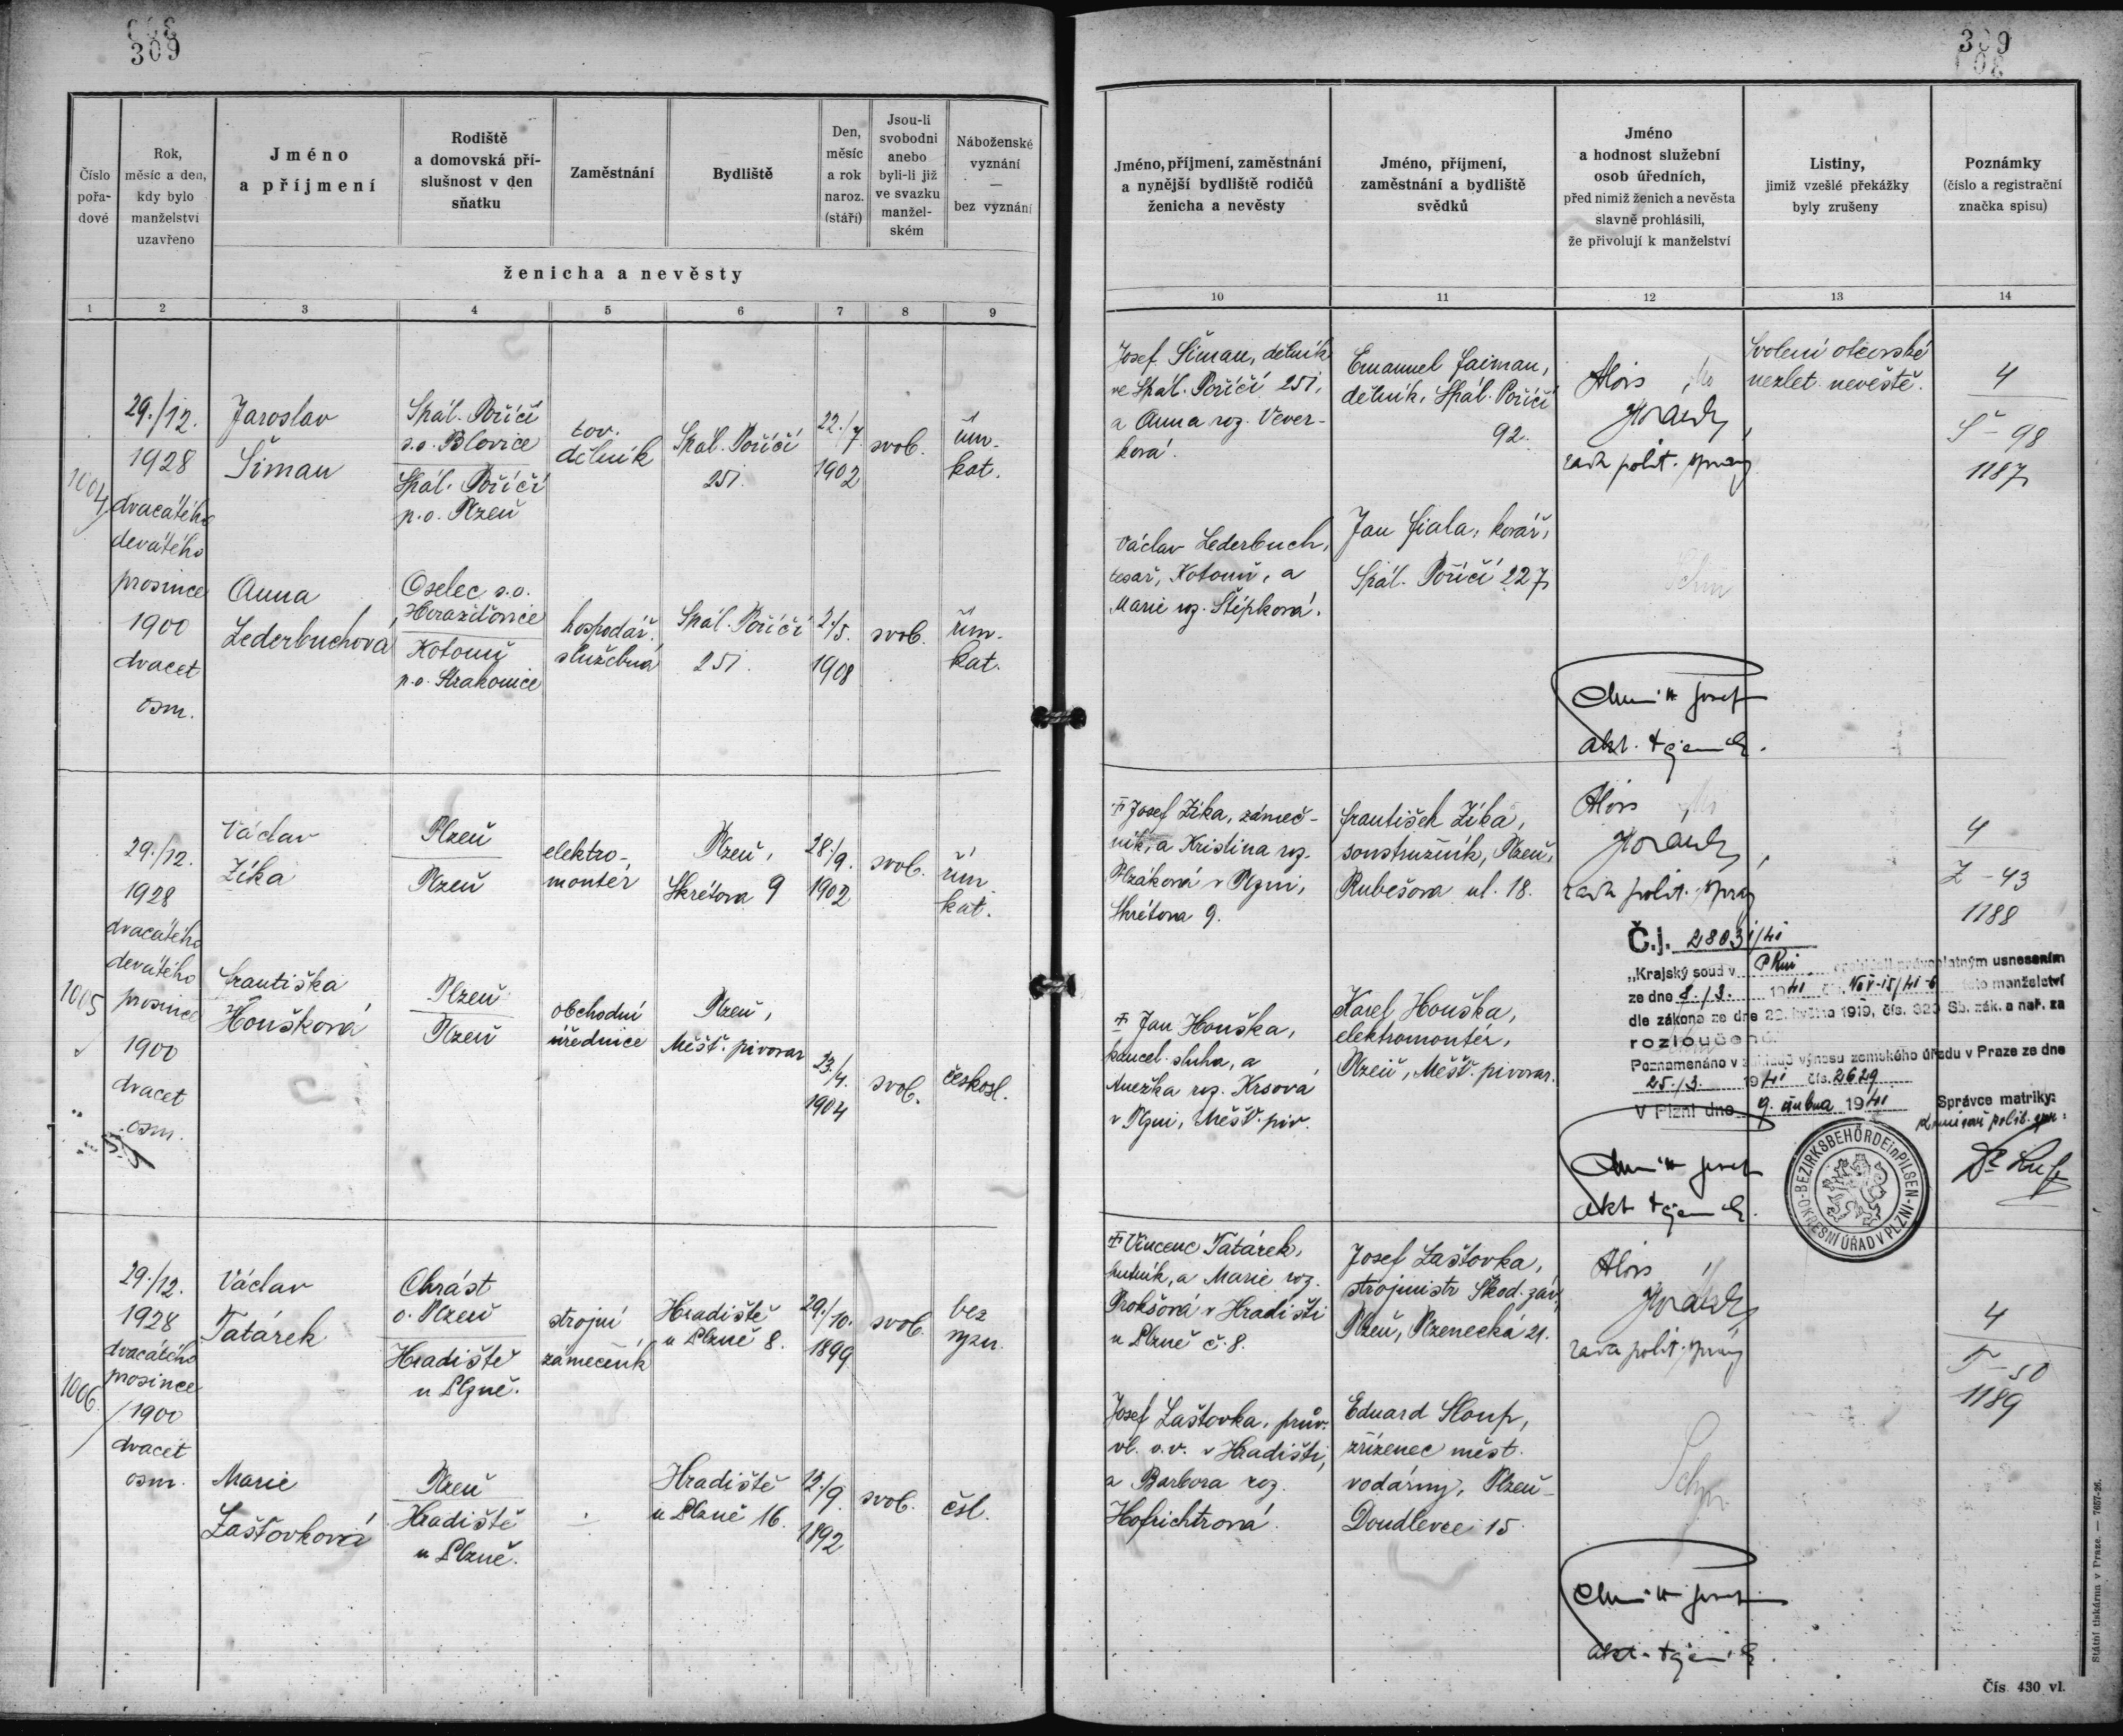 309
309
Číslo pořa- dové
Rok, měsíc a den, kdy bylo manželství uzavřeno
Jméno a příjmení
Rodiště a domovská pří- slušnost v den sňatku
Zaměstnání
Bydliště
Den, měsíc a rok naroz. (stáří)
Jsou-li svobodni anebo byli-li již ve svazku manžel- ském
Náboženské vyznání — bez vyznání
ženicha a nevěsty
Jméno, příjmení, zaměstnání a nynější bydliště rodičů ženicha a nevěsty
Jméno, příjmení, zaměstnání a bydliště svědků
Jméno a hodnost služební osob úředních, před nimiž ženich a nevěsta slavně prohlásili, že přivolují k manželství
Listiny, jimiž vzešlé překážky byly zrušeny
Poznámky (číslo a registrační značka spisu)
1 2 3 4 5 6 7 8 9 10 11 12 13 14
1004
29./12.
1928
dvacátého
devátého
prosince
1900
dvacet
osm.
Jaroslav
Šiman
Spál. Poříčí
s.o. Blovice
Spál. Poříčí
p.o. Plzeň
tov.
dělník
Spál. Poříčí
251.
22./7
1902
svob.
řím.
kat.
Josef Šiman, dělník
ve Spál. Poříčí 251,
a Anna roz. Vever-
ková.
Emanuel Faiman,
dělník, Spál. Poříčí
92.
Alois
Horák,
rada polit. správy
Svolení otcovské
nezlet. nevěstě.
4
Š-98
1187
Anna
Lederbuchová
Oselec s.o.
Horažďovice
Kotouň
p.o. Strakonice
hospodář.
služebná
Spál. Poříčí
251.
2./5.
1908
svob.
řím.
kat.
Václav Lederbuch,
tesař, Kotouň, a
Marie roz. Štípková.
Jan Fiala, kovář,
Spál. Poříčí 227
Josef
akt.
1005
29./12.
1928
dvacátého
devátého
prosince
1900
dvacet
osm.
Václav
Zíka
Plzeň
Plzeň
elektro-
montér
Plzeň,
Skrétova 9
28./9.
1902
svob.
řím.
kat.
Josef Zíka, zámeč-
ník, a Kristina roz.
Plzáková v Plzni,
Skrétova 9.
František Zíka,
soustružník, Plzeň,
Rubešova ul. 18.
Alois
Horák,
rada polit. správy
4
Z-43
1188
Františka
Houšková
Plzeň
Plzeň
obchodní
úřednice
Plzeň,
Měšť. pivovar
23./4.
1904
svob.
českosl.
Jan Houška,
kancel. sluha, a
Anežka roz. Krsová
v Plzni, Měšť. piv.
Karel Houška,
elektromontér,
Plzeň, Měšť. pivovar.
Č.j. 28031/41
„Krajský soud v Plzni prohlásil právoplatným usnesením
ze dne 8./3. 1941 toto manželství
dle zákona ze dne 22. května 1919, čís. 320 Sb. zák. a nař. za
rozloučené.
Poznamenáno v základě výnosu zemského úřadu v Praze ze dne
25./3. 1941 čís. 2629
V Plzni dne 9. dubna 1941
Správce matriky:
BEZIRKSBEHÖRDE in PILSEN
OKRESNÍ ÚŘAD V PLZNI
Josef
akt.
1006
29./12.
1928
dvacátého
prosince
1900
dvacet
osm.
Václav
Tatárek
Chrást
o. Plzeň
Hradiště
u Plzně.
strojní
zámečník
Hradiště
u Plzně 8.
29./10.
1899
svob.
bez
vyzn.
Vincenc Tatárek,
hutník, a Marie roz.
Prokšová v Hradišti
u Plzně č. 8.
Josef Laštovka,
strojmistr Škod. záv.
Plzeň, Plzenecká 21.
Alois
Horák
rada polit. správy
4
T-50
1189
Marie
Laštovková
Plzeň
Hradiště
u Plzně.
Hradiště
u Plzně 16.
12./9.
1892
svob.
čsl.
Josef Laštovka, prův.
vl. v.v. v Hradišti,
a Barbora roz.
Hofrichtrová.
Eduard Sloup,
zřízenec měst.
vodárny, Plzeň-
Doudlevce 15.
Josef
akt.
Čís. 430 vl.
Státní tiskárna v Praze. — 7657-26.